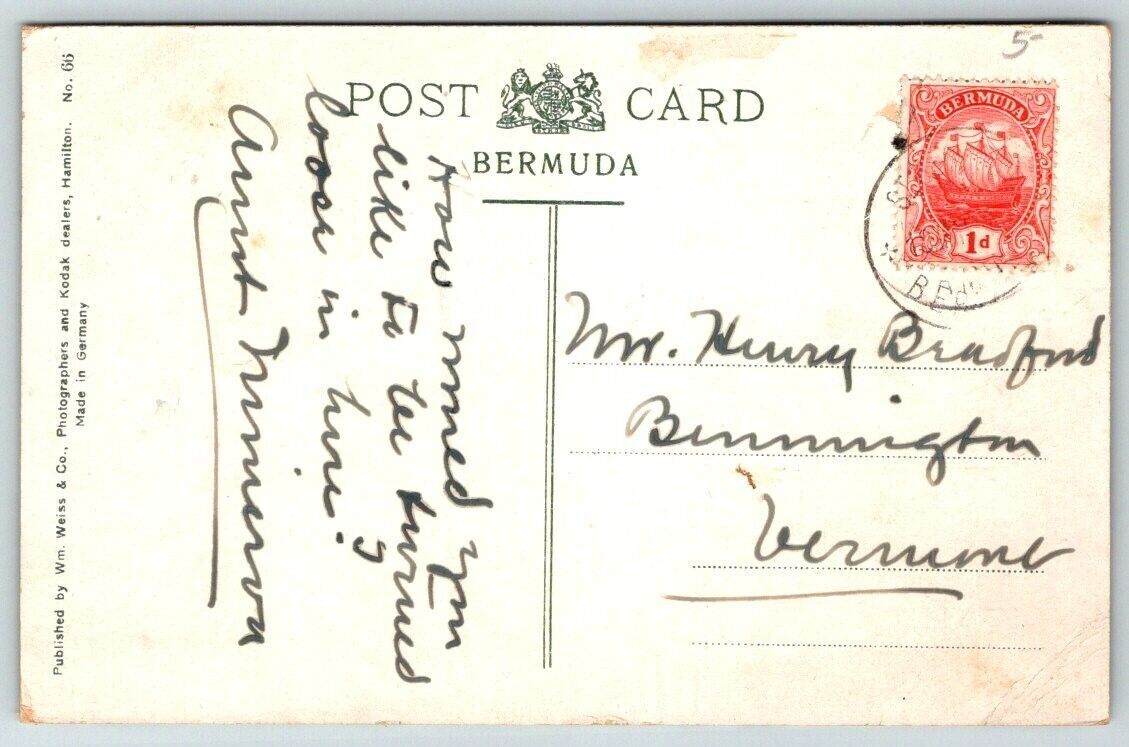 5-
POST CARD
BERMUDA
BERMUDA
1d
How would you
like to be turned
loose in here?
Aunt Minerva
Mr. Henry Bradford
Bennington
Vermont
Published by Wm. Weiss & Co., Photographers and Kodak dealers, Hamilton. No. 66
Made in Germany